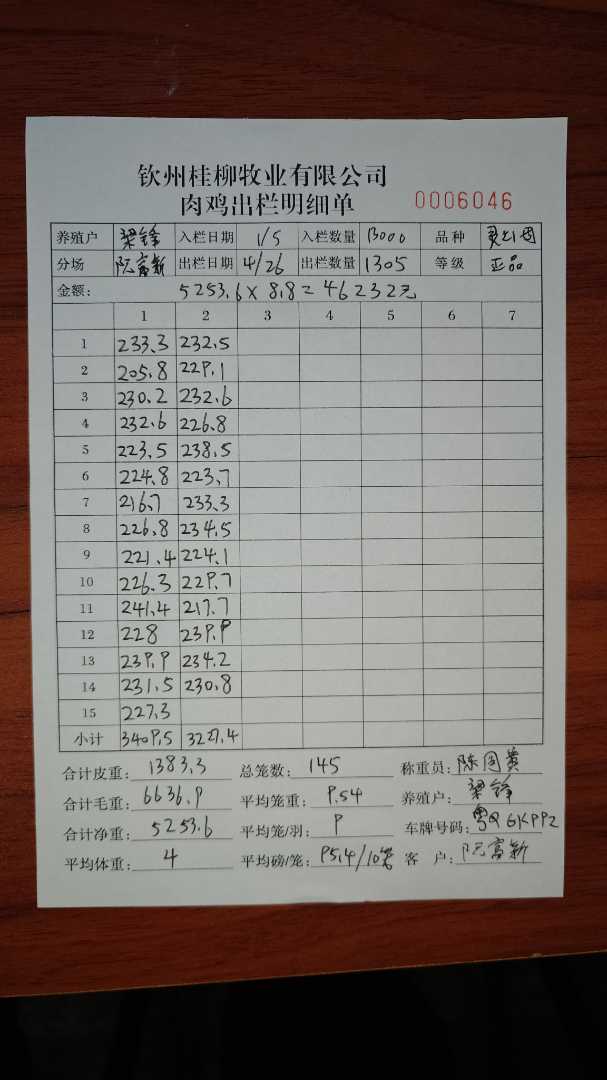 钦州桂柳牧业有限公司
肉鸡出栏明细单 0006046
养殖户 梁锋 入栏日期 1/5 入栏数量 13000 品种
分场 阮富新 出栏日期 4/26 出栏数量 1305 等级 正品
金额: 5253.6×8.8=46232元
1 2 3 4 5 6 7
1 233.3 232.5
2 205.8 229.1
3 230.2 232.6
4 232.6 226.8
5 223.5 238.5
6 224.8 223.7
7 216.7 233.3
8 226.8 234.5
9 221.4 224.1
10 226.3 229.7
11 241.4 217.7
12 228 239.9
13 239.9 234.2
14 231.5 230.8
15 227.3
小计 3409.5 3227.4
合计皮重: 1383.3 总笼数: 145 称重员: 陈国贵
合计毛重: 6636.9 平均笼重: 9.54 养殖户: 梁锋
合计净重: 5253.6 平均笼/羽: 9 车牌号码: 粤Q GKP92
平均体重: 4 平均磅/笼: 95.4/10笼 客户: 阮富新